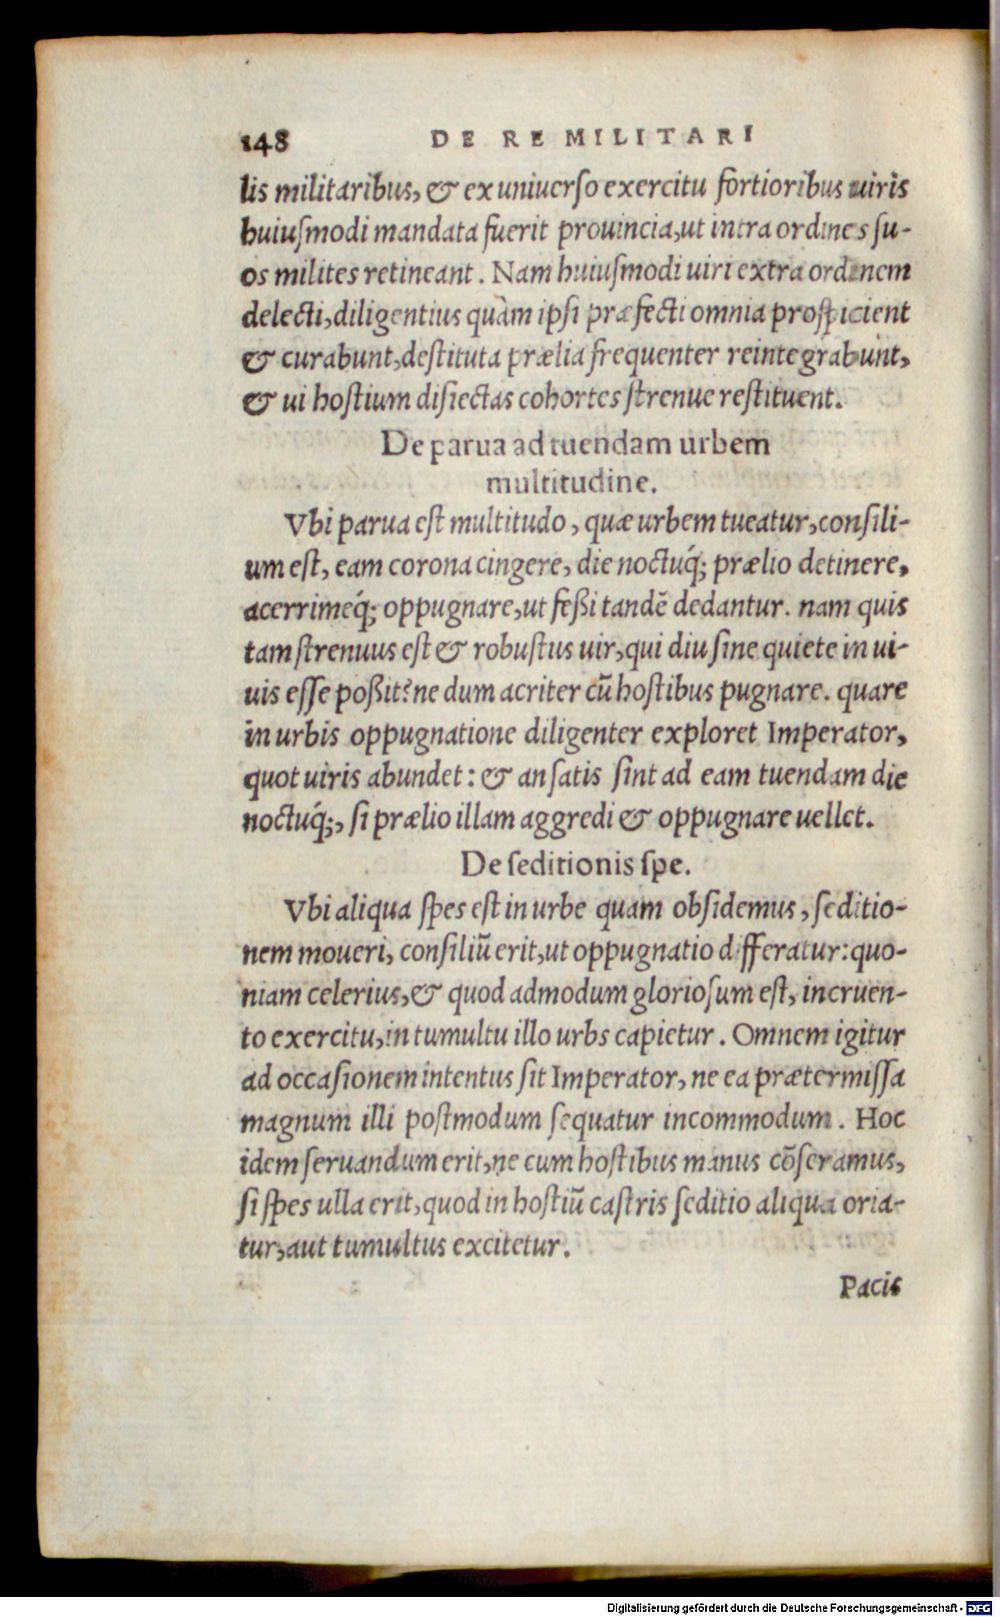 148 DE RE MILITARI
lis militaribus, & ex uniuerso exercitu fortioribus uiris
huiusmodi mandata fuerit prouincia, ut intra ordines su-
os milites retineant. Nam huiusmodi uiri extra ordinem
delecti, diligentius quàm ipsi præfecti omnia prospicient
& curabunt, destituta prælia frequenter reintegrabunt,
& ui hostium disiectas cohortes strenue restituent.
De parua ad tuendam urbem
multitudine.
Vbi parua est multitudo, quæ urbem tueatur, consili-
um est, eam corona cingere, die noctuq́; prælio detinere,
acerrimeq́; oppugnare, ut feßi tandē dedantur. nam quis
tam strenuus est & robustus uir, qui diu sine quiete in ui-
uis esse poßit? ne dum acriter cū hostibus pugnare. quare
in urbis oppugnatione diligenter exploret Imperator,
quot uiris abundet: & an satis sint ad eam tuendam die
noctuq́;, si prælio illam aggredi & oppugnare uellet.
De seditionis spe.
Vbi aliqua spes est in urbe quam obsidemus, seditio-
nem moueri, consiliū erit, ut oppugnatio differatur: quo-
niam celerius, & quod admodum gloriosum est, incruen-
to exercitu, in tumultu illo urbs capietur. Omnem igitur
ad occasionem intentus sit Imperator, ne ea prætermissa
magnum illi postmodum sequatur incommodum. Hoc
idem seruandum erit, ne cum hostibus manus cōseramus,
si spes ulla erit, quod in hostiū castris seditio aliqua oria-
tur, aut tumultus excitetur.
Pacis
Digitalisierung gefördert durch die Deutsche Forschungsgemeinschaft - DFG